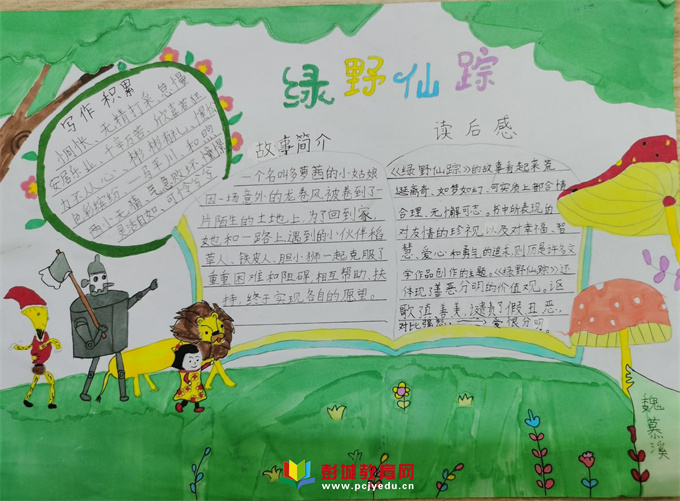 绿野仙踪
写作积累
惆怅、无精打采、怠慢
安居乐业、千辛万苦、欣喜若狂
力不从心、彬彬有礼、
色彩缤纷、一马平川、和鸣
两小无猜、气急败坏、
灵活自如、可怜兮兮
故事简介
一个名叫多萝茜的小姑娘
因一场意外的龙卷风被卷到了一
片陌生的土地上,为了回到家
她和一路上遇到的小伙伴稻
草人、铁皮人、胆小狮一起克服了
重重困难和阻碍相互帮助、扶
持,终于实现各自的愿望。
读后感
《绿野仙踪》的故事看起来荒
诞离奇、如梦如幻,可实质上都合情
合理,无懈可击。书中所表现的
对友情的珍视,以及对幸福、智
慧、爱心和勇气的追求,则历是许多文
学作品创作的主题。《绿野仙踪》还
体现了善恶分明的价值观,讴
歌真善美,谴责了假丑恶,
对比强烈,爱恨分明。
魏慕溪
彭城教育网
www.pcjyedu.cn